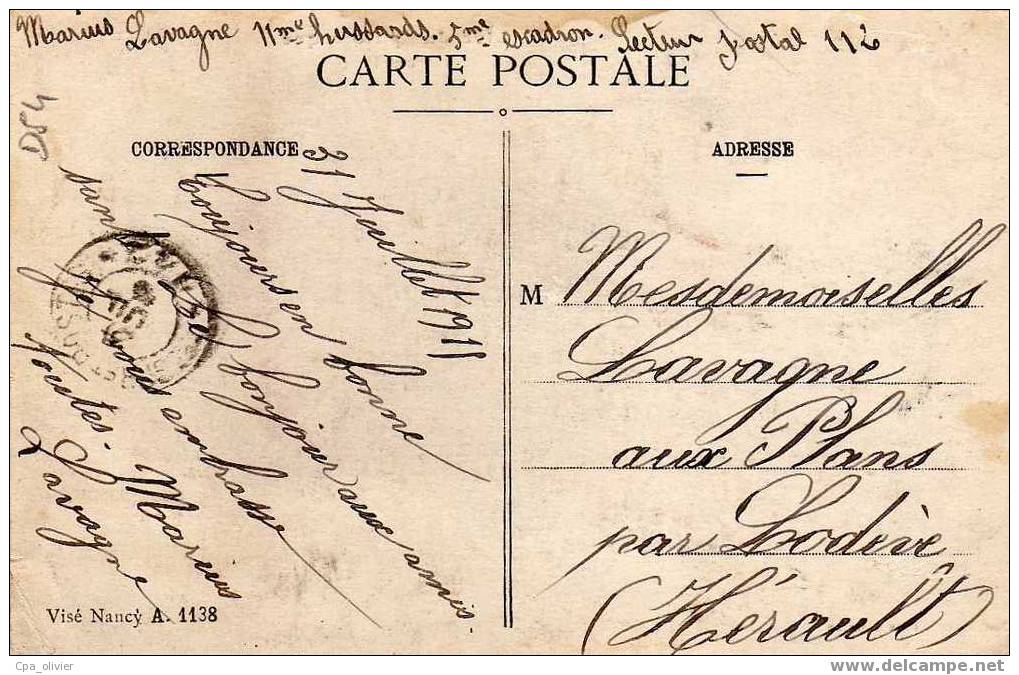 Marius Lavagne 11me hussards. 5me escadron. Secteur postal 112
CARTE POSTALE
CORRESPONDANCE
ADRESSE
31 Juillet 1915
Toujours en bonne
santé. Bonjour aux amis.
Je vous embrasse
toutes. Marius
Lavagne
M Mesdemoiselles
Lavagne
aux Plans
par Lodève
(Hérault)
Visé Nancy A. 1138
Cpa_olivier
www.delcampe.net